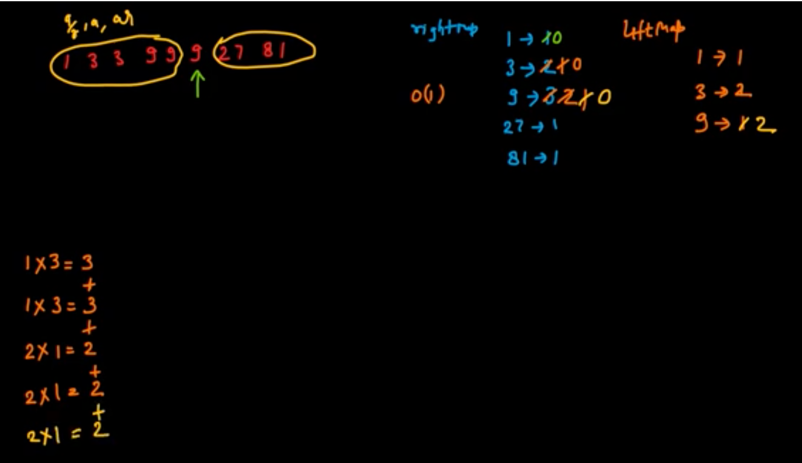 a/r, a, ar
1 3 3 9 9 9 27 81
rightmap
1 → 1 0
3 → 2 1 0
O(1)
9 → 3 2 1 0
27 → 1
81 → 1
leftMap
1 → 1
3 → 2
9 → 1 2
1 x 3 = 3
+
1 x 3 = 3
+
2 x 1 = 2
+
2 x 1 = 2
+
2 x 1 = 2